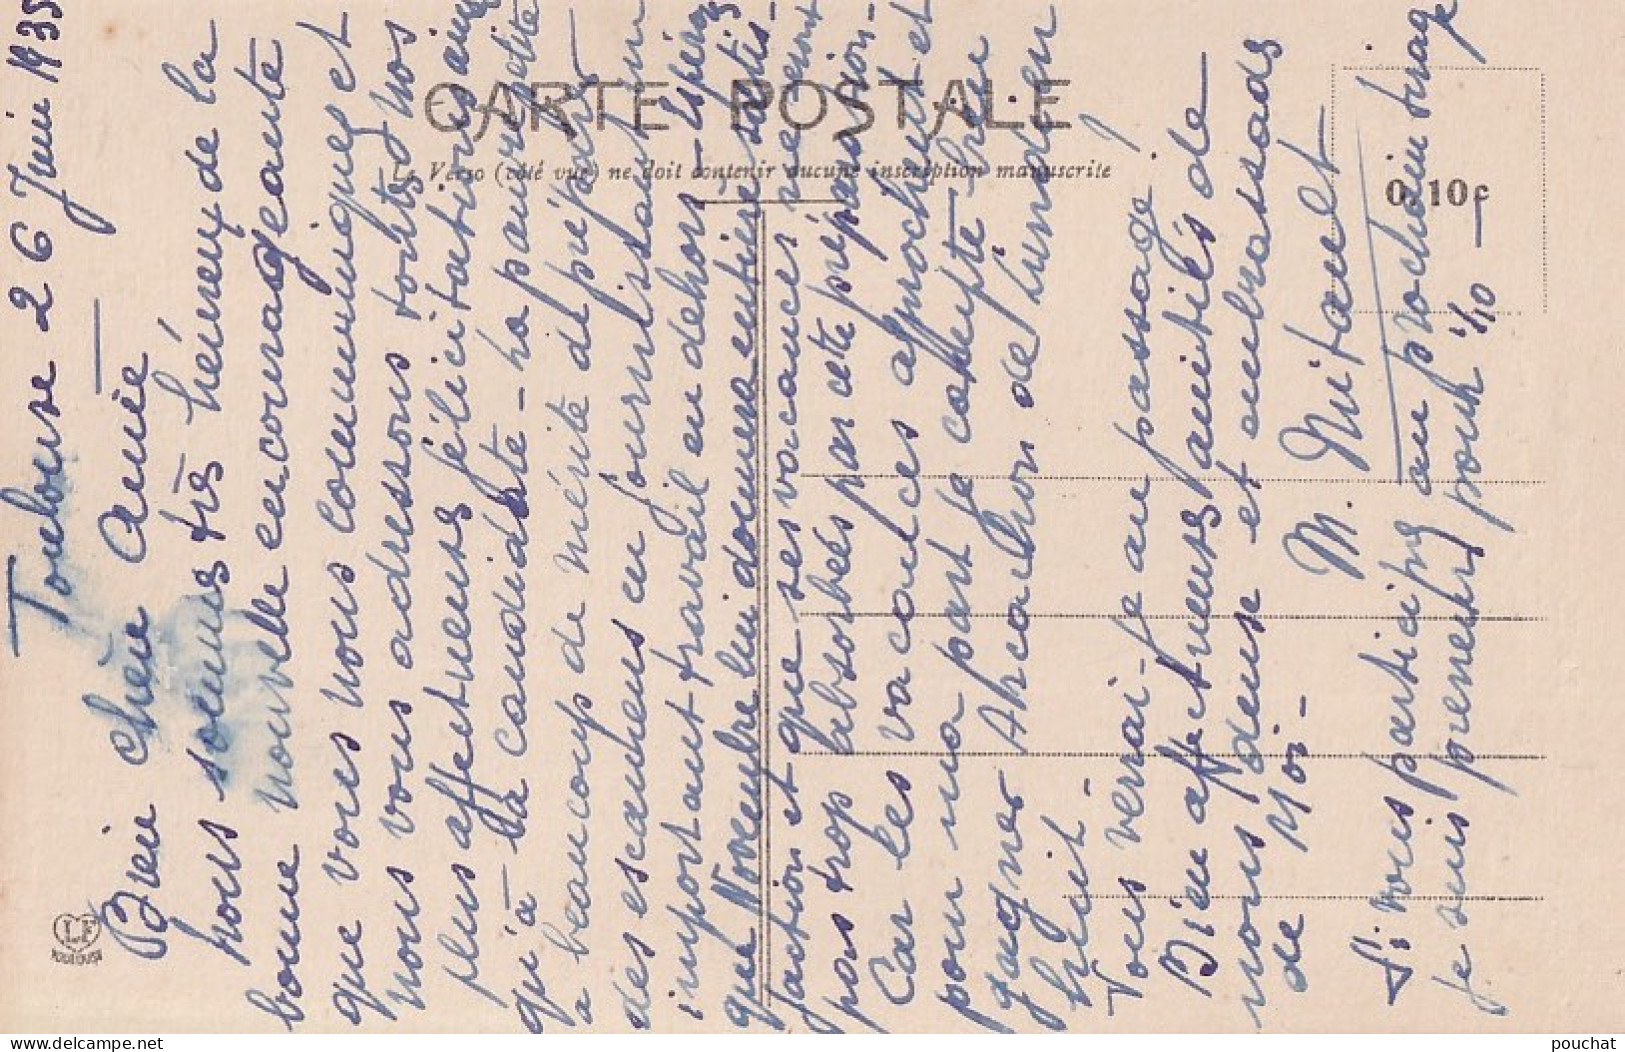 Toulouse 26 Juin 1935
Bien chère Amie
Nous sommes très héureux de la
bonne nouvelle encourageante
que vous nous communiquez et
nous vous adressons toutes nos
plus affectueuses félicitations ainsi
qu'à la candidate - La pauvre petite
a beaucoup de mérite de préparer
des examens en fournissant un
important travail en dehors - Espérons
que Novembre lui donnera entière satis-
faction et que ses vacances ne seront
pas trop absorbées par cette préparation -
Car les vacances approchent et
pour ma part je compte bien
gagner Arcachon de lundi en
huit -
Vous verrai-je au passage ?
Bien affectueuses amitiés de
nous deux et embrassades
de Moi -
M. Mitault
Si vous participez au prochain tirage
je suis preneur pour 1/10 -
CARTE POSTALE
Le Verso (côté vue) ne doit contenir aucune inscription manuscrite
0,10c
LF
TOULOUSE
delcampe.net
pouchat